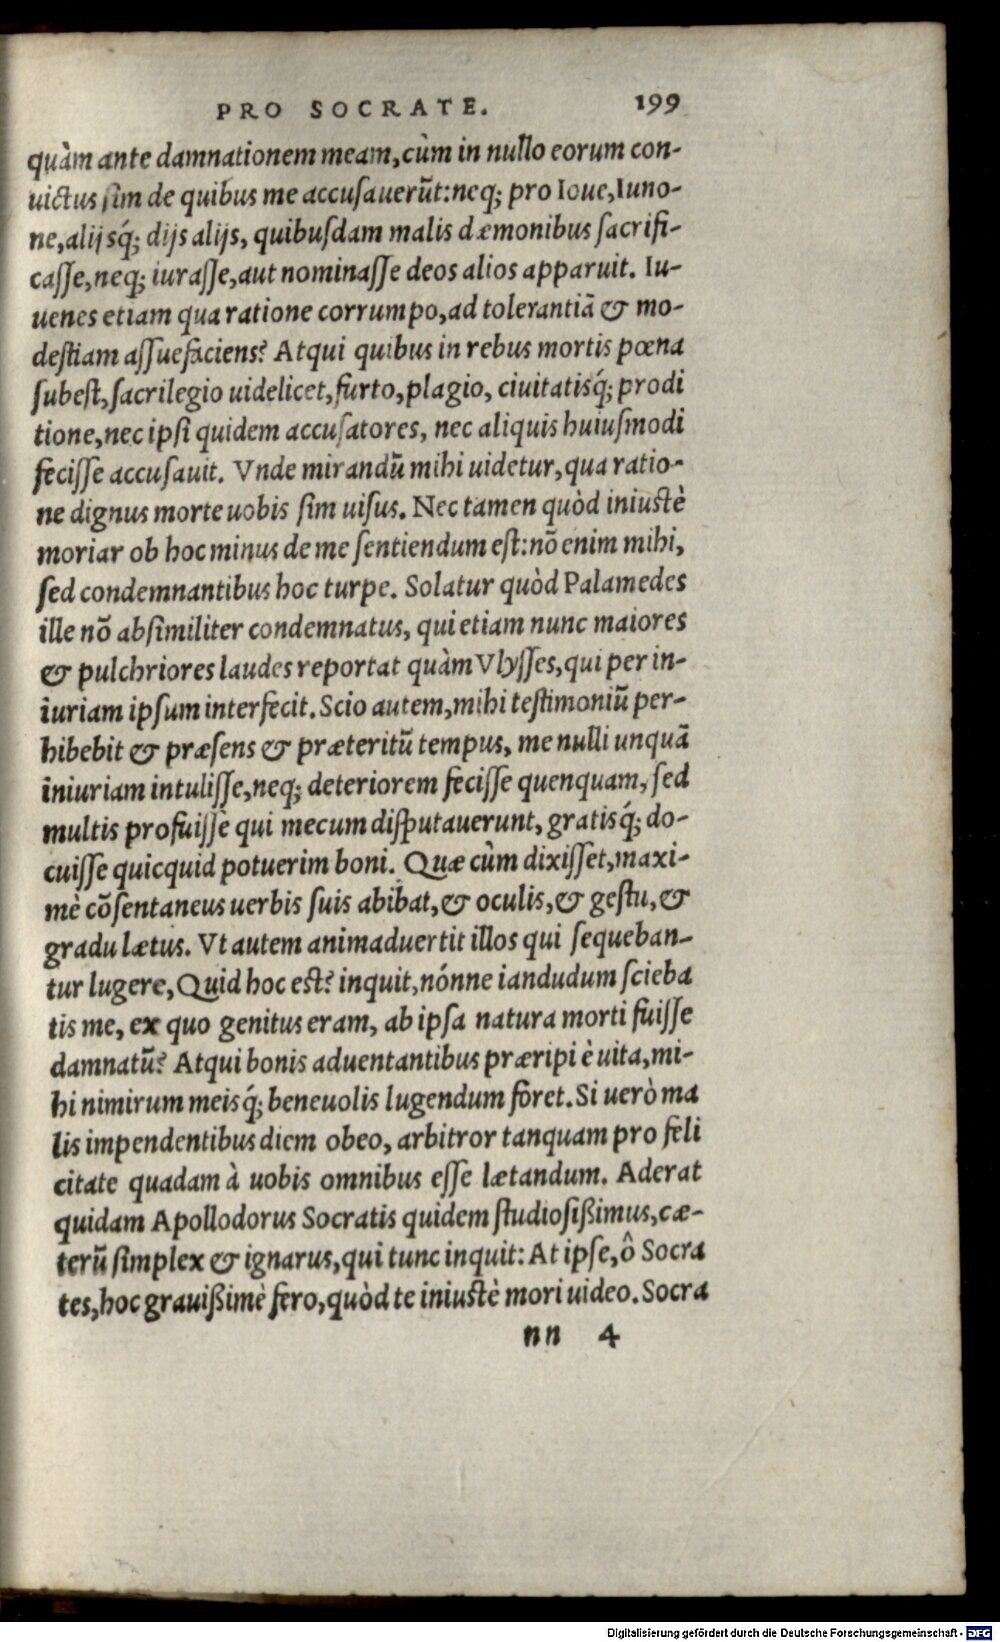 PRO SOCRATE. 199
quàm ante damnationem meam, cùm in nullo eorum con-
uictus sim de quibus me accusauerūt: neq; pro Ioue, Iuno-
ne, alijsq́; dijs alijs, quibusdam malis dæmonibus sacrifi-
casse, neq; iurasse, aut nominasse deos alios apparuit. Iu-
uenes etiam qua ratione corrumpo, ad tolerantiā & mo-
destiam assuefaciens? Atqui quibus in rebus mortis pœna
subest, sacrilegio uidelicet, furto, plagio, ciuitatisq́; prodi
tione, nec ipsi quidem accusatores, nec aliquis huiusmodi
fecisse accusauit. Vnde mirandū mihi uidetur, qua ratio-
ne dignus morte uobis sim uisus. Nec tamen quòd iniustè
moriar ob hoc minus de me sentiendum est: nō enim mihi,
sed condemnantibus hoc turpe. Solatur quòd Palamedes
ille nō absimiliter condemnatus, qui etiam nunc maiores
& pulchriores laudes reportat quàm Vlysses, qui per in-
iuriam ipsum interfecit. Scio autem, mihi testimoniū per-
hibebit & præsens & præteritū tempus, me nulli unquā
iniuriam intulisse, neq; deteriorem fecisse quenquam, sed
multis profuisse qui mecum disputauerunt, gratisq́; do-
cuisse quicquid potuerim boni. Quæ cùm dixisset, maxi-
mè cōsentaneus uerbis suis abibat, & oculis, & gestu, &
gradu lætus. Vt autem animaduertit illos qui sequeban-
tur lugere, Quid hoc est? inquit, nónne iandudum scieba
tis me, ex quo genitus eram, ab ipsa natura morti fuisse
damnatū? Atqui bonis aduentantibus præripi è uita, mi-
hi nimirum meisq́; beneuolis lugendum foret. Si uerò ma
lis impendentibus diem obeo, arbitror tanquam pro feli
citate quadam à uobis omnibus esse lætandum. Aderat
quidam Apollodorus Socratis quidem studiosißimus, cæ-
terū simplex & ignarus, qui tunc inquit: At ipse, ô Socra
tes, hoc grauißimè fero, quòd te iniustè mori uideo. Socra
nn 4
Digitalisierung gefördert durch die Deutsche Forschungsgemeinschaft - DFG